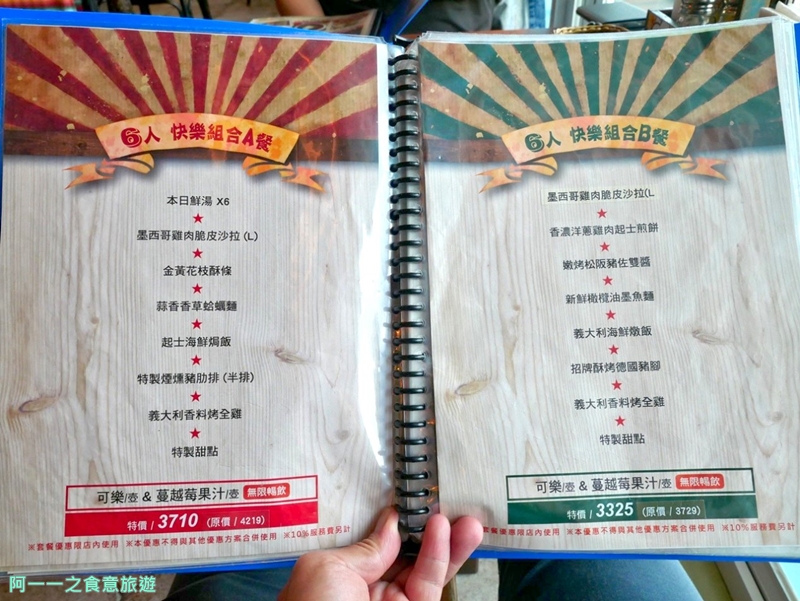 6人 快樂組合A餐
本日鮮湯 X6
墨西哥雞肉脆皮沙拉 (L)
金黃花枝酥條
蒜香香草蛤蠣麵
起士海鮮焗飯
特製煙燻豬肋排 (半排)
義大利香料烤全雞
特製甜點
可樂/壺 & 蔓越莓果汁/壺 無限暢飲
特價 / 3710 (原價 / 4219)
※套餐優惠限店內使用 ※本優惠不得與其他優惠方案合併使用 ※10%服務費另計
6人 快樂組合B餐
墨西哥雞肉脆皮沙拉(L
香濃洋蔥雞肉起士煎餅
嫩烤松阪豬佐雙醬
新鮮橄欖油墨魚麵
義大利海鮮燉飯
招牌酥烤德國豬腳
義大利香料烤全雞
特製甜點
可樂/壺 & 蔓越莓果汁/壺 無限暢飲
特價 / 3325 (原價 / 3729)
※套餐優惠限店內使用 ※本優惠不得與其他優惠方案合併使用 ※10%服務費另計
阿一一之食意旅遊